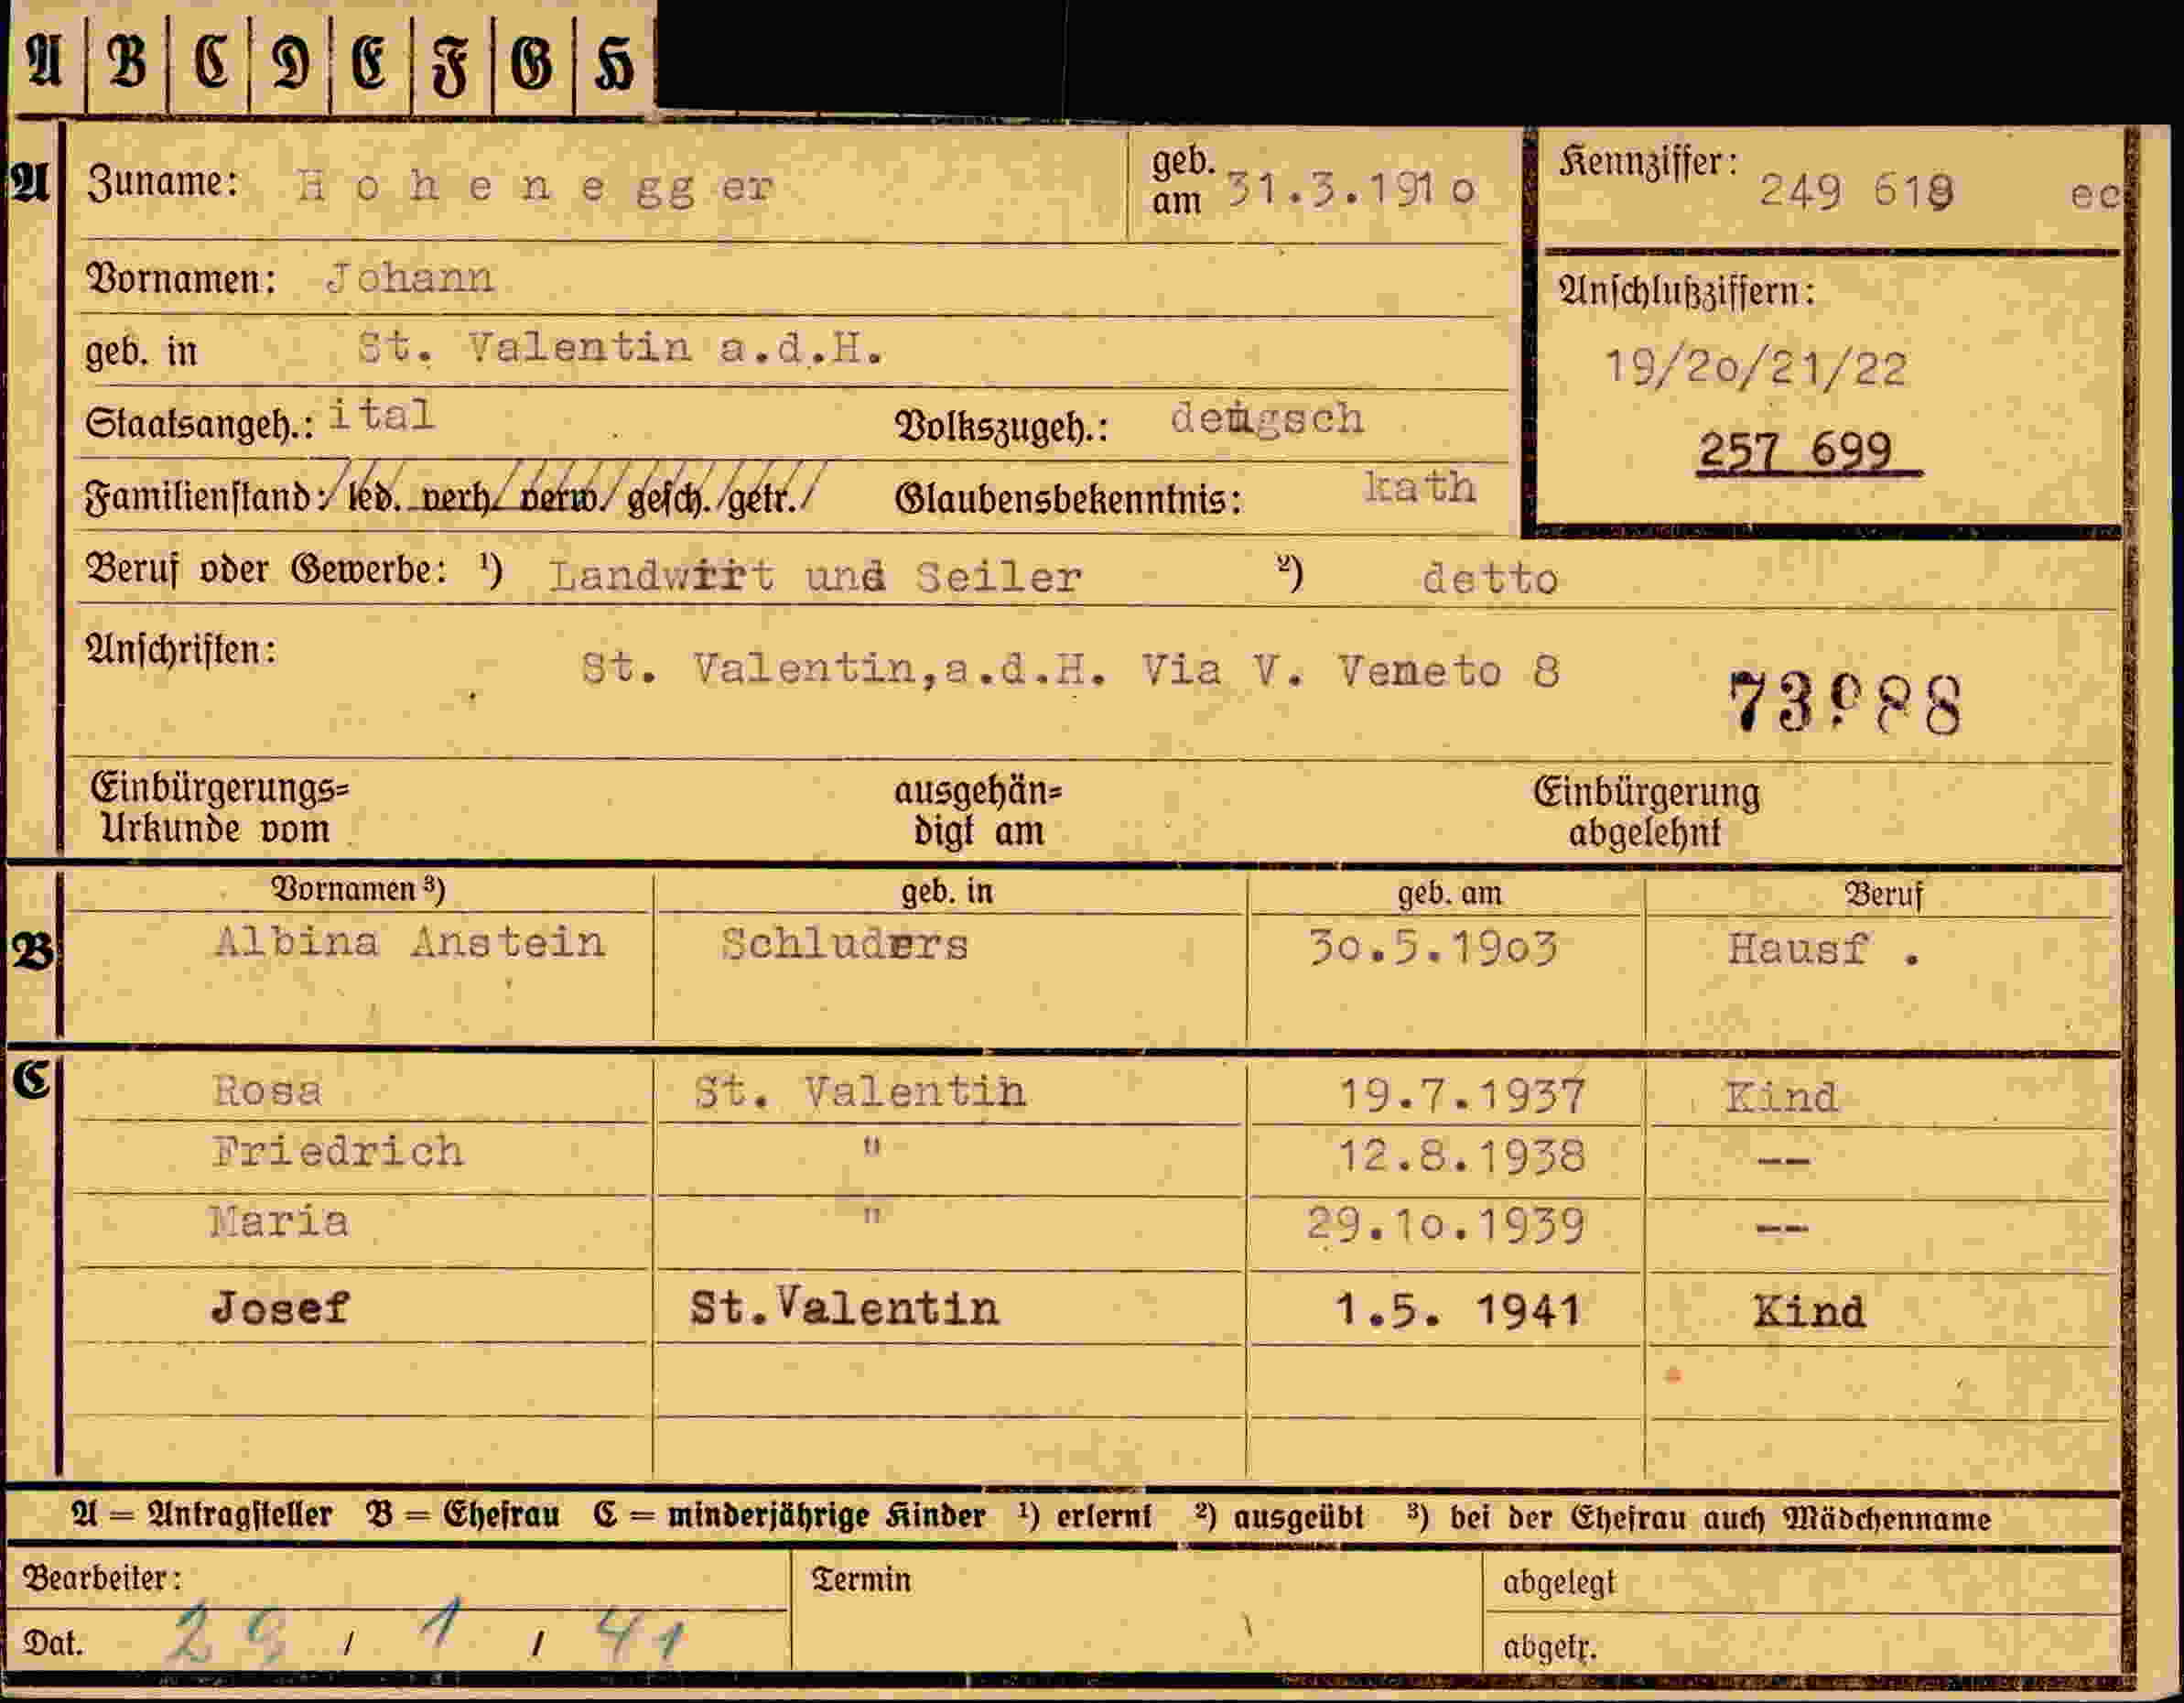 A B C D E F G H
A Zuname: Hohenegger geb. am 31.3.191o Kennziffer: 249 618 ec
Vornamen: Johann
Anschlußziffern:
geb. in St. Valentin a.d.H.
19/2o/21/22
Staatsangeh.: ital Volkszugeh.:
257 699
Familienstand: led. verh. verw. gesch. getr. Glaubensbekenntnis: kath
Beruf oder Gewerbe: ¹) Landwirt und Seiler ²) detto
Anschriften: St. Valentin,a.d.H. Via V. Veneto 8
Einbürgerungs=
Urkunde vom
ausgehän=
digt am
Einbürgerung
abgelehnt
Vornamen ³) geb. in geb. am Beruf
B Albina Anstein Schluders 3o.5.19o3 Hausf .
C Rosa St. Valentin 19.7.1937 Kind
Friedrich " 12.8.1938 --
Maria " 29.1o.1939 --
Josef St.Valentin 1.5. 1941 Kind
A = Antragsteller B = Ehefrau C = minderjährige Kinder ¹) erlernt ²) ausgeübt ³) bei der Ehefrau auch Mädchenname
Bearbeiter: Termin abgelegt
Dat. / 1 / 41 abgetr.